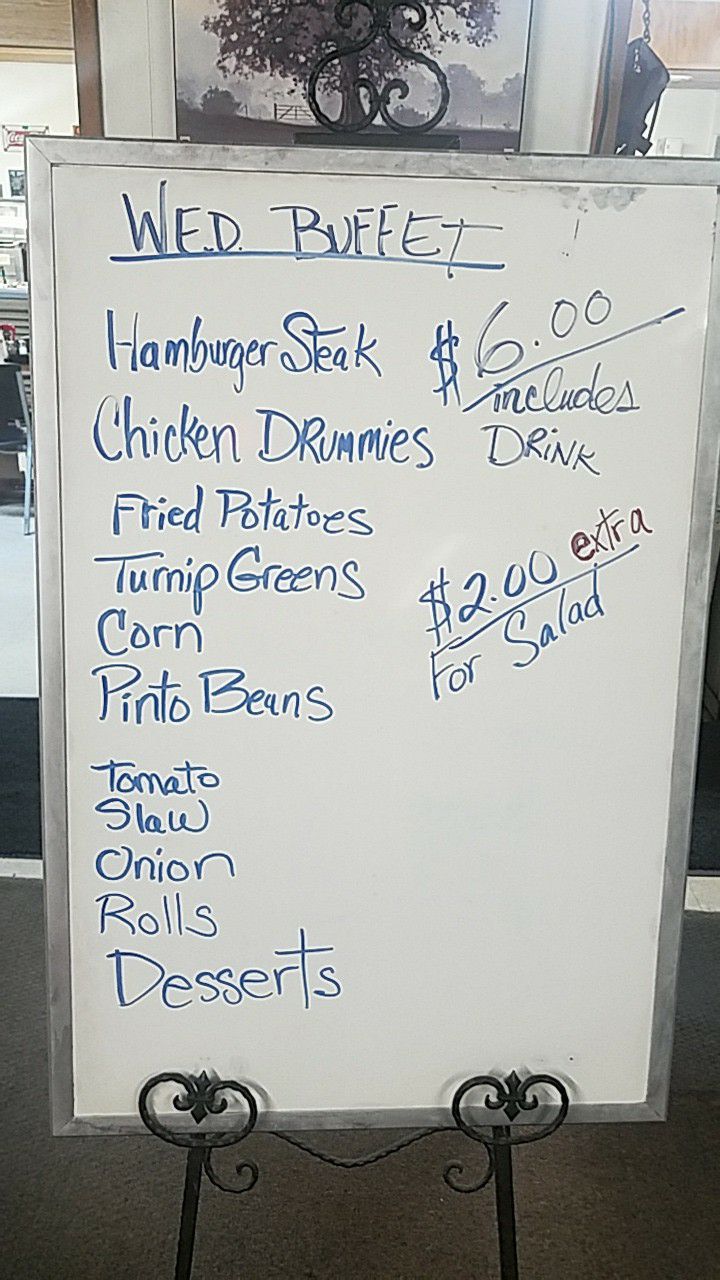 WED. BUFFET
Hamburger Steak
Chicken DRummies
Fried Potatoes
Turnip Greens
Corn
Pinto Beans
Tomato
Slaw
Onion
Rolls
Desserts
$6.00
includes
DRiNK
$2.00 extra
For Salad